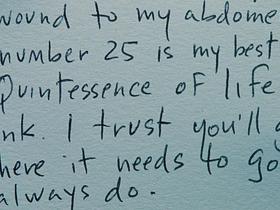 wound to my abdome
number 25 is my best
Quintessence of life
ink. I trust you'll
here it needs to go
always do.